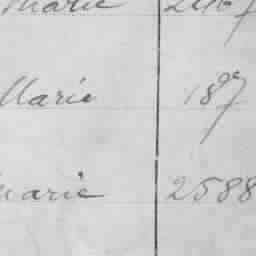 Marie
Marie 187
Marie 2588